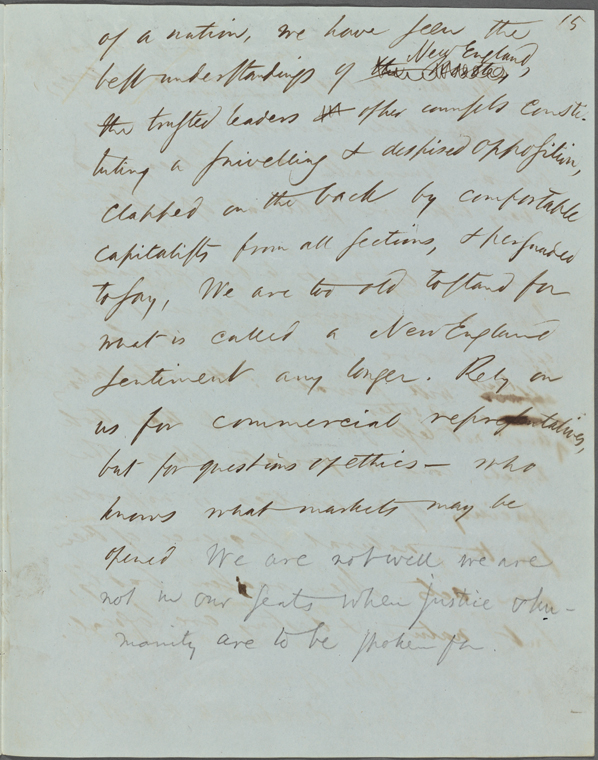 15
of a nation, we have seen the
New England,
best understandings of
the trusted leaders of other counsels consti-
tuting a snivelling & despised opposition,
clapped on the back by comfortable
capitalists from all sections, & persuaded
to say, We are too old to stand for
what is called a New England
sentiment any longer. Rely on
us for commercial representatives,
but for questions of ethics — who
knows what markets may be
opened We are not well we are
not in our seats when justice & hu-
manity are to be spoken for.